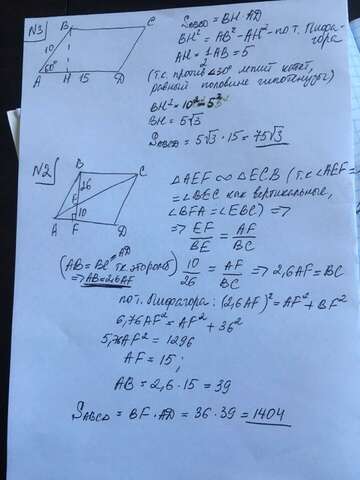 N3
B C
10
60°
A H 15 D
S_ABCD = BH · AD
BH² = AB² - AH² - по т. Пифагора
AH = 1/2 AB = 5
(т.к. против ∠30° лежит катет,
равный половине гипотенузы)
BH² = 10² - 5²
BH = 5√3
S_ABCD = 5√3 · 15 = 75√3
N2
B C
26
E
10
A F D
△AEF ∞ △ECB (т.к ∠AEF =
= ∠BEC как вертикальные,
∠BFA = ∠EBC) =>
=> EF/BE = AF/BC
(AB = BC = AD т.к.
=> AB = 2,6AF)
10/26 = AF/BC => 2,6AF = BC
по т. Пифагора: (2,6AF)² = AF² + BF²
6,76AF² = AF² + 36²
5,76AF² = 1296
AF = 15;
AB = 2,6 · 15 = 39
S_ABCD = BF · AD = 36 · 39 = 1404